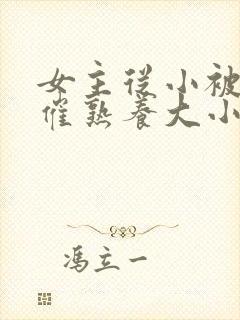 女主从小被
催熟养大小
冯立一